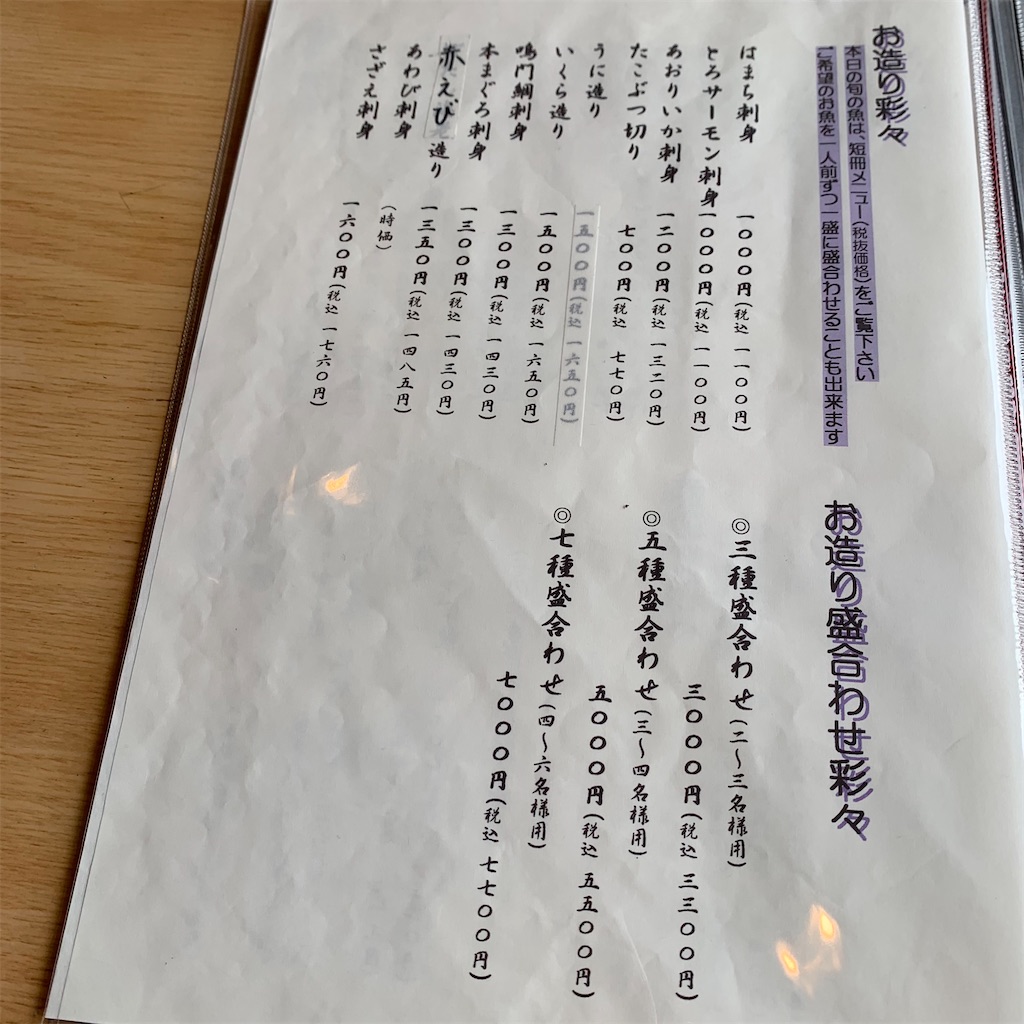 お造り彩々
本日の旬の魚は、短冊メニュー(税抜価格)をご覧下さい
ご希望のお魚を一人前ずつ一盛に盛合わせることも出来ます
はまち刺身 一〇〇〇円(税込 一一〇〇円)
とろサーモン刺身 一〇〇〇円(税込 一一〇〇円)
あおりいか刺身 一二〇〇円(税込 一三二〇円)
たこぶつ切り 七〇〇円(税込 七七〇円)
うに造り 一五〇〇円(税込 一六五〇円)
いくら造り 一五〇〇円(税込 一六五〇円)
鳴門鯛刺身 一三〇〇円(税込 一四三〇円)
本まぐろ刺身 一三〇〇円(税込 一四三〇円)
赤えび造り 一三五〇円(税込 一四八五円)
あわび刺身 (時価)
さざえ刺身 一六〇〇円(税込 一七六〇円)
お造り盛合わせ彩々
◎三種盛合わせ(二〜三名様用)
三〇〇〇円(税込 三三〇〇円)
◎五種盛合わせ(三〜四名様用)
五〇〇〇円(税込 五五〇〇円)
◎七種盛合わせ(四〜六名様用)
七〇〇〇円(税込 七七〇〇円)